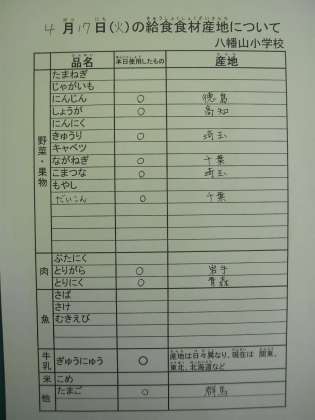 4月17日(火)の給食食材産地について
八幡山小学校
品名 本日使用したもの 産地
野菜・果物
たまねぎ
じゃがいも
にんじん ○ 徳島
しょうが ○ 高知
にんにく
きゅうり ○ 埼玉
キャベツ
ながねぎ ○ 千葉
こまつな ○ 埼玉
もやし
だいこん ○ 千葉
肉
ぶたにく
とりがら ○ 岩手
とりにく ○ 青森
魚
さば
さけ
むきえび
牛乳 ぎゅうにゅう ○ 産地は日々異なり、現在は 関東、
東北、北海道など
米 こめ
他 たまご ○ 群馬